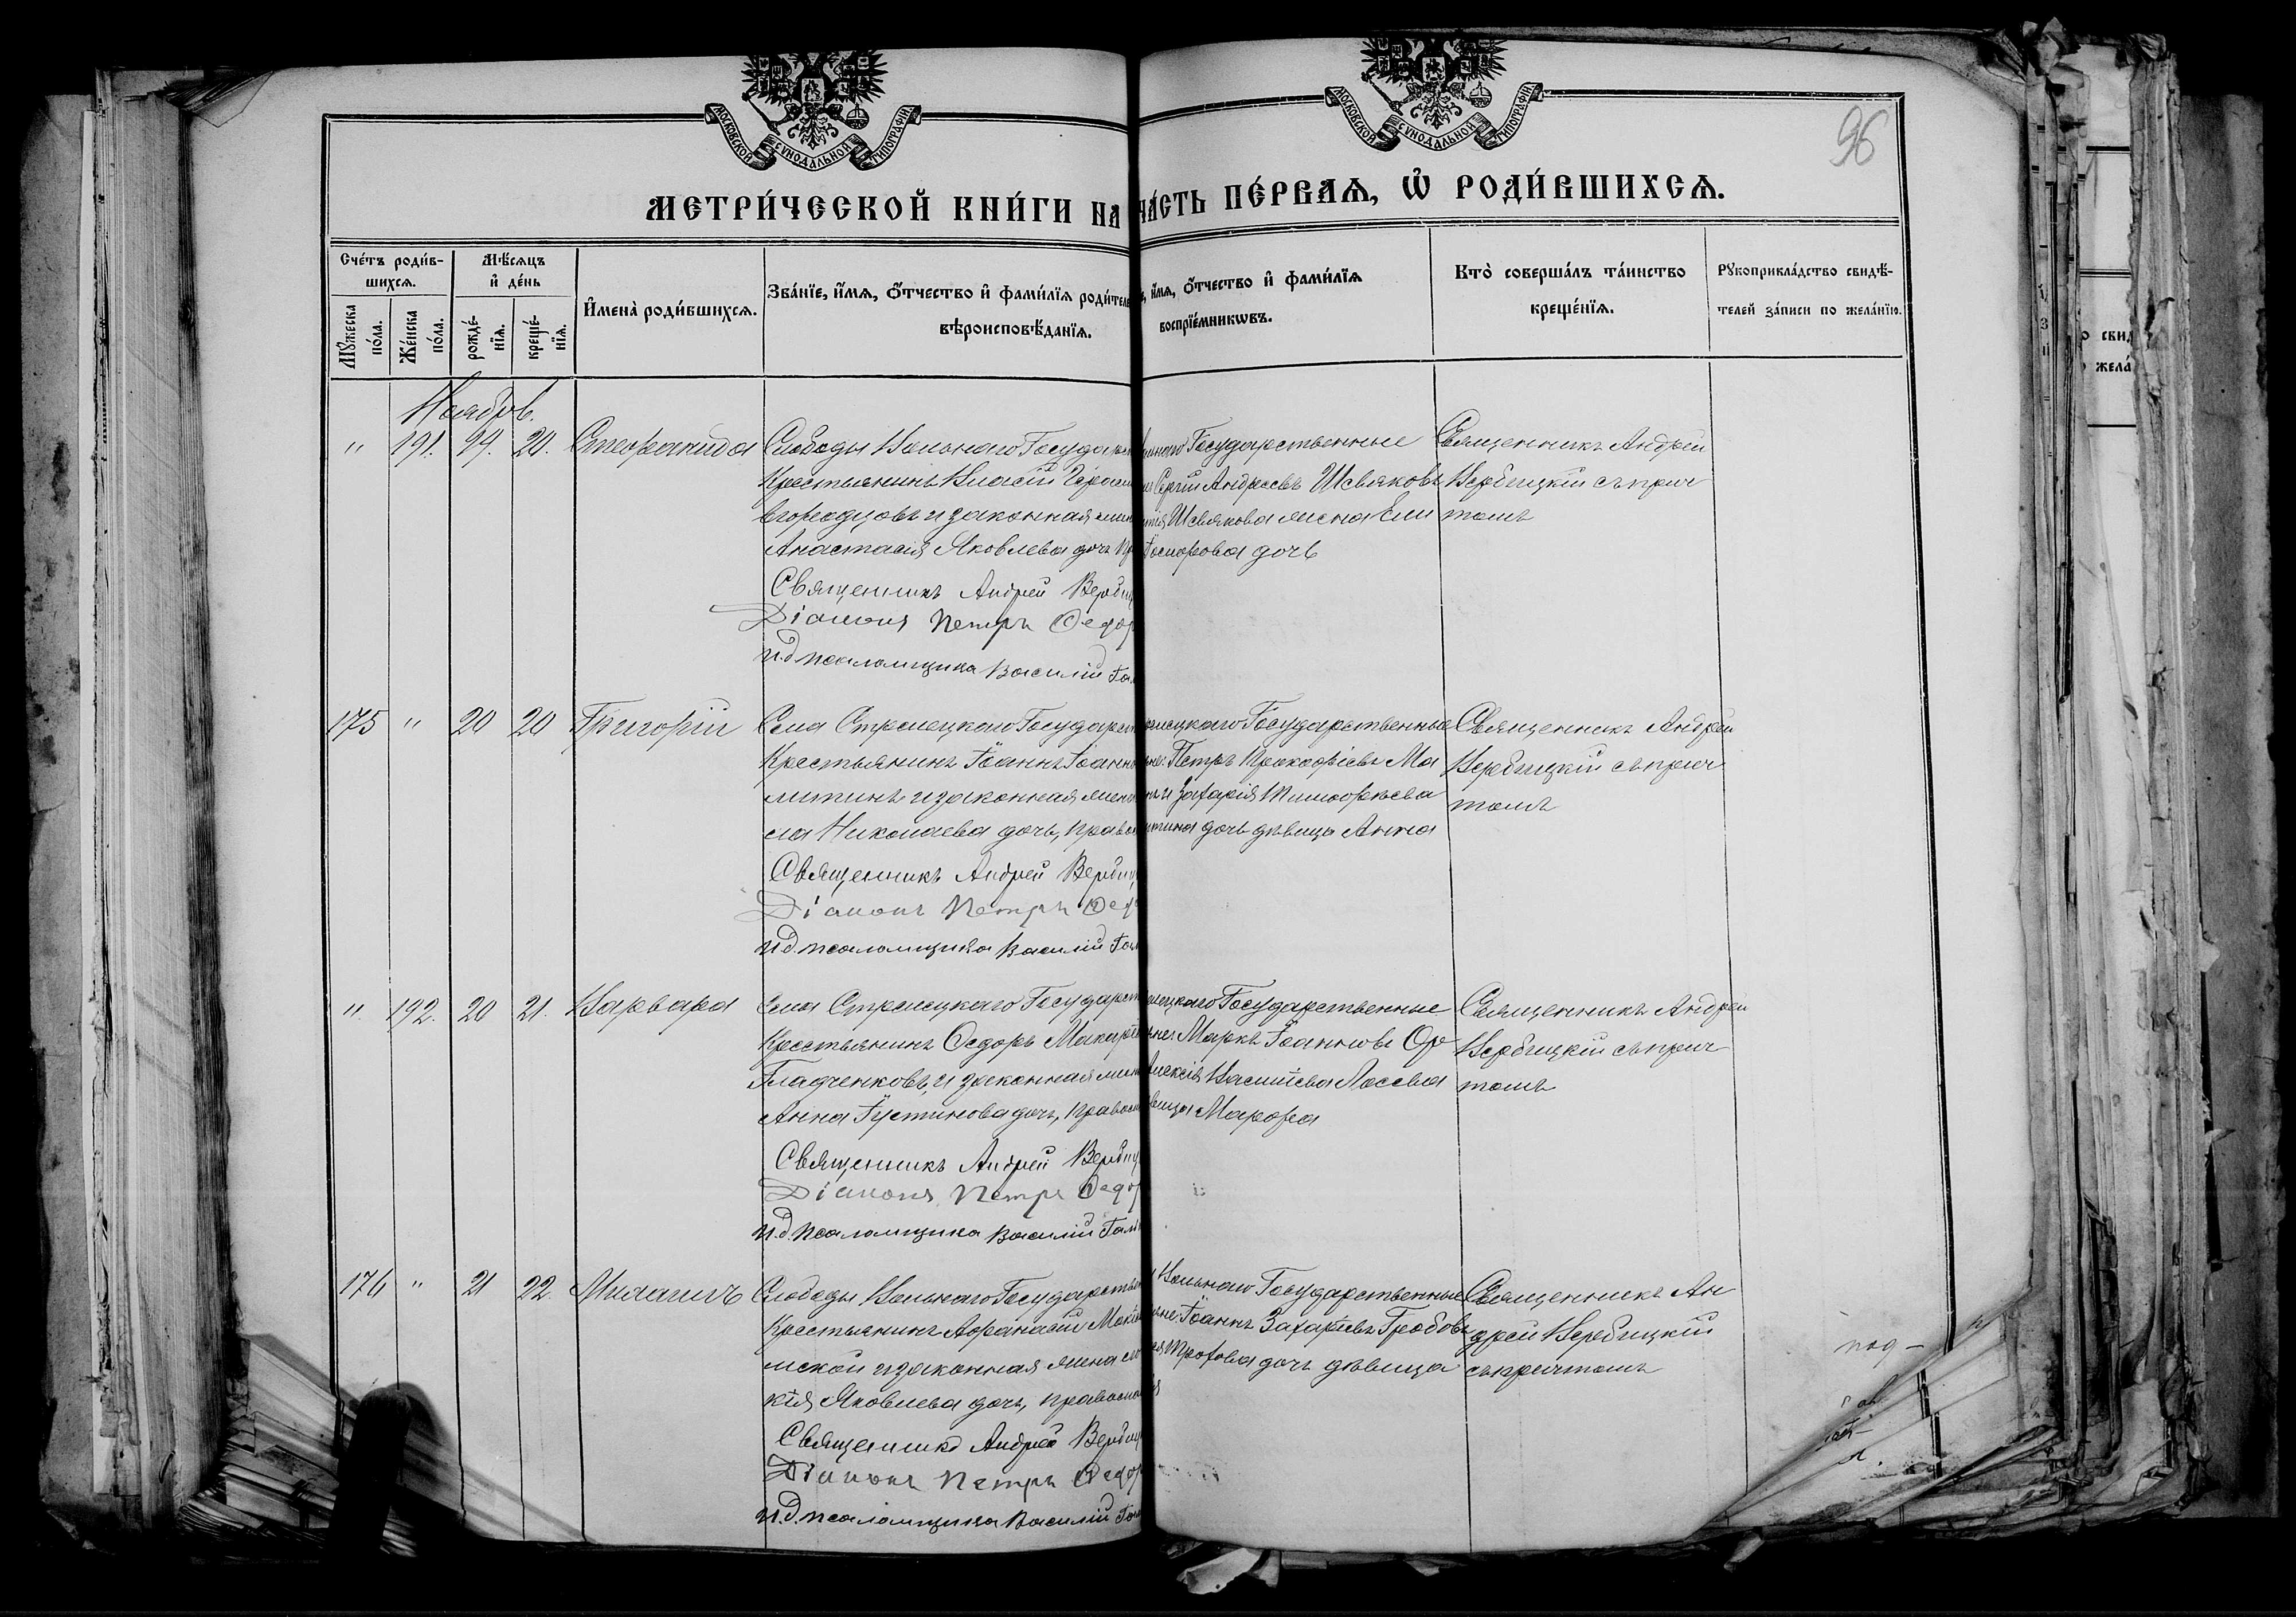 МОСКОВСКОЙ СѴНОДАЛЬНОЙ ТИПОГРАФІИ
МОСКОВСКОЙ СѴНОДАЛЬНОЙ ТИПОГРАФІИ
96
МЕТРИ́ЧЕСКОЙ КНИ́ГИ НА
ЧА́СТЬ ПЕ́РВАѦ, Ѽ РОДИ́ВШИХСѦ.
Сче́тъ роди́в-
шихсѧ.
Мѣ́сѧцъ
и҆ де́нь
Мꙋ́жеска по́ла.
Же́нска по́ла.
рожде́-
нїѧ.
креще́-
нїѧ.
И҆мена̀ роди́вшихсѧ.
Зва́нїе, и҆́мѧ, ѻ҆́тчество и҆ фами́лїѧ роди́теле
вѣроисповѣ́данїѧ.
и҆́мѧ, ѻ҆́тчество и҆ фами́лїѧ
воспрїе́мникѡвъ.
Кто̀ соверша́лъ та́инство
креще́нїѧ.
Рꙋкоприкла́дство свидѣ́-
телей за́писи по жела́нїю.
Ноябрь.
" 191. 19. 20. Стефанида
Слободы Вольнаго Государст
Крестьянинъ Власій Герасим
и законная жен
Анастасія Яковлева дочь пр
Священникъ Андрей Вербиц
Діаконъ Петръ Ѳедор
И.д. псаломщика Василій Гал
льнаго Государственные
Сергій Андреевъ Шевяковъ
Шевякова жена Ели
дочь
Священникъ Андрей
Вербицкій съ прич
томъ
175 " 20 20 Григорій
Села Стрелецкаго Государст
Крестьянинъ Іоаннъ Іоанно
литинъ и законная жен
са Николаева дочь, правос
Священникъ Андрей Вербиц
Діаконъ Петръ Ѳед
И.д. псаломщика Василій Гал
лецкаго Государственные
не: Петръ Прокофіевъ Ма
и Захарія Тимофѣева
итина дочь дѣвица Анна
Священникъ Андрей
Вербицкій съ прич
томъ
" 192. 20 21. Варвара
Села Стрелецкаго Государст
Крестьянинъ Ѳедоръ Макарі
Гладченковъ, и законная жен
Анна Іустинова дочь, правос
Священникъ Андрей Вербиц
Діаконъ Петръ Ѳедор
И.д. псаломщика Василій Гал
лецкаго Государственные
не: Маркъ Іоанновъ
Алексія Васильева Лосева
вица Марфа
Священникъ Андрей
Вербицкій съ прич
томъ
176 " 21 22 Михаилъ
Слободы Вольнаго Государстве
Крестьянинъ Афанасій
и законная жена
кія Яковлева дочь, правосла
Священникъ Андрей Вербиц
Діаконъ Петръ Ѳедор
И.д. псаломщика Василій Гал
Вольнаго Государственные
не: Іоаннъ Захаріевъ Гробовъ
дочь дѣвица
Священникъ Ан
дрей Вербицкій
съ причтомъ
под-